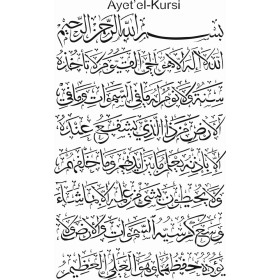 Ayet'el-Kursi
بسم الله الرحمن الرحيم
الله لا اله الا هو الحي القيوم لا تأخذه
سنة ولا نوم له ما في السموات وما في
الارض من ذا الذي يشفع عنده
الا باذنه يعلم ما بين ايديهم وما خلفهم
ولا يحيطون بشئ من علمه الا بما شاء
وسع كرسيه السموات والارض ولا
يؤده حفظهما وهو العلي العظيم